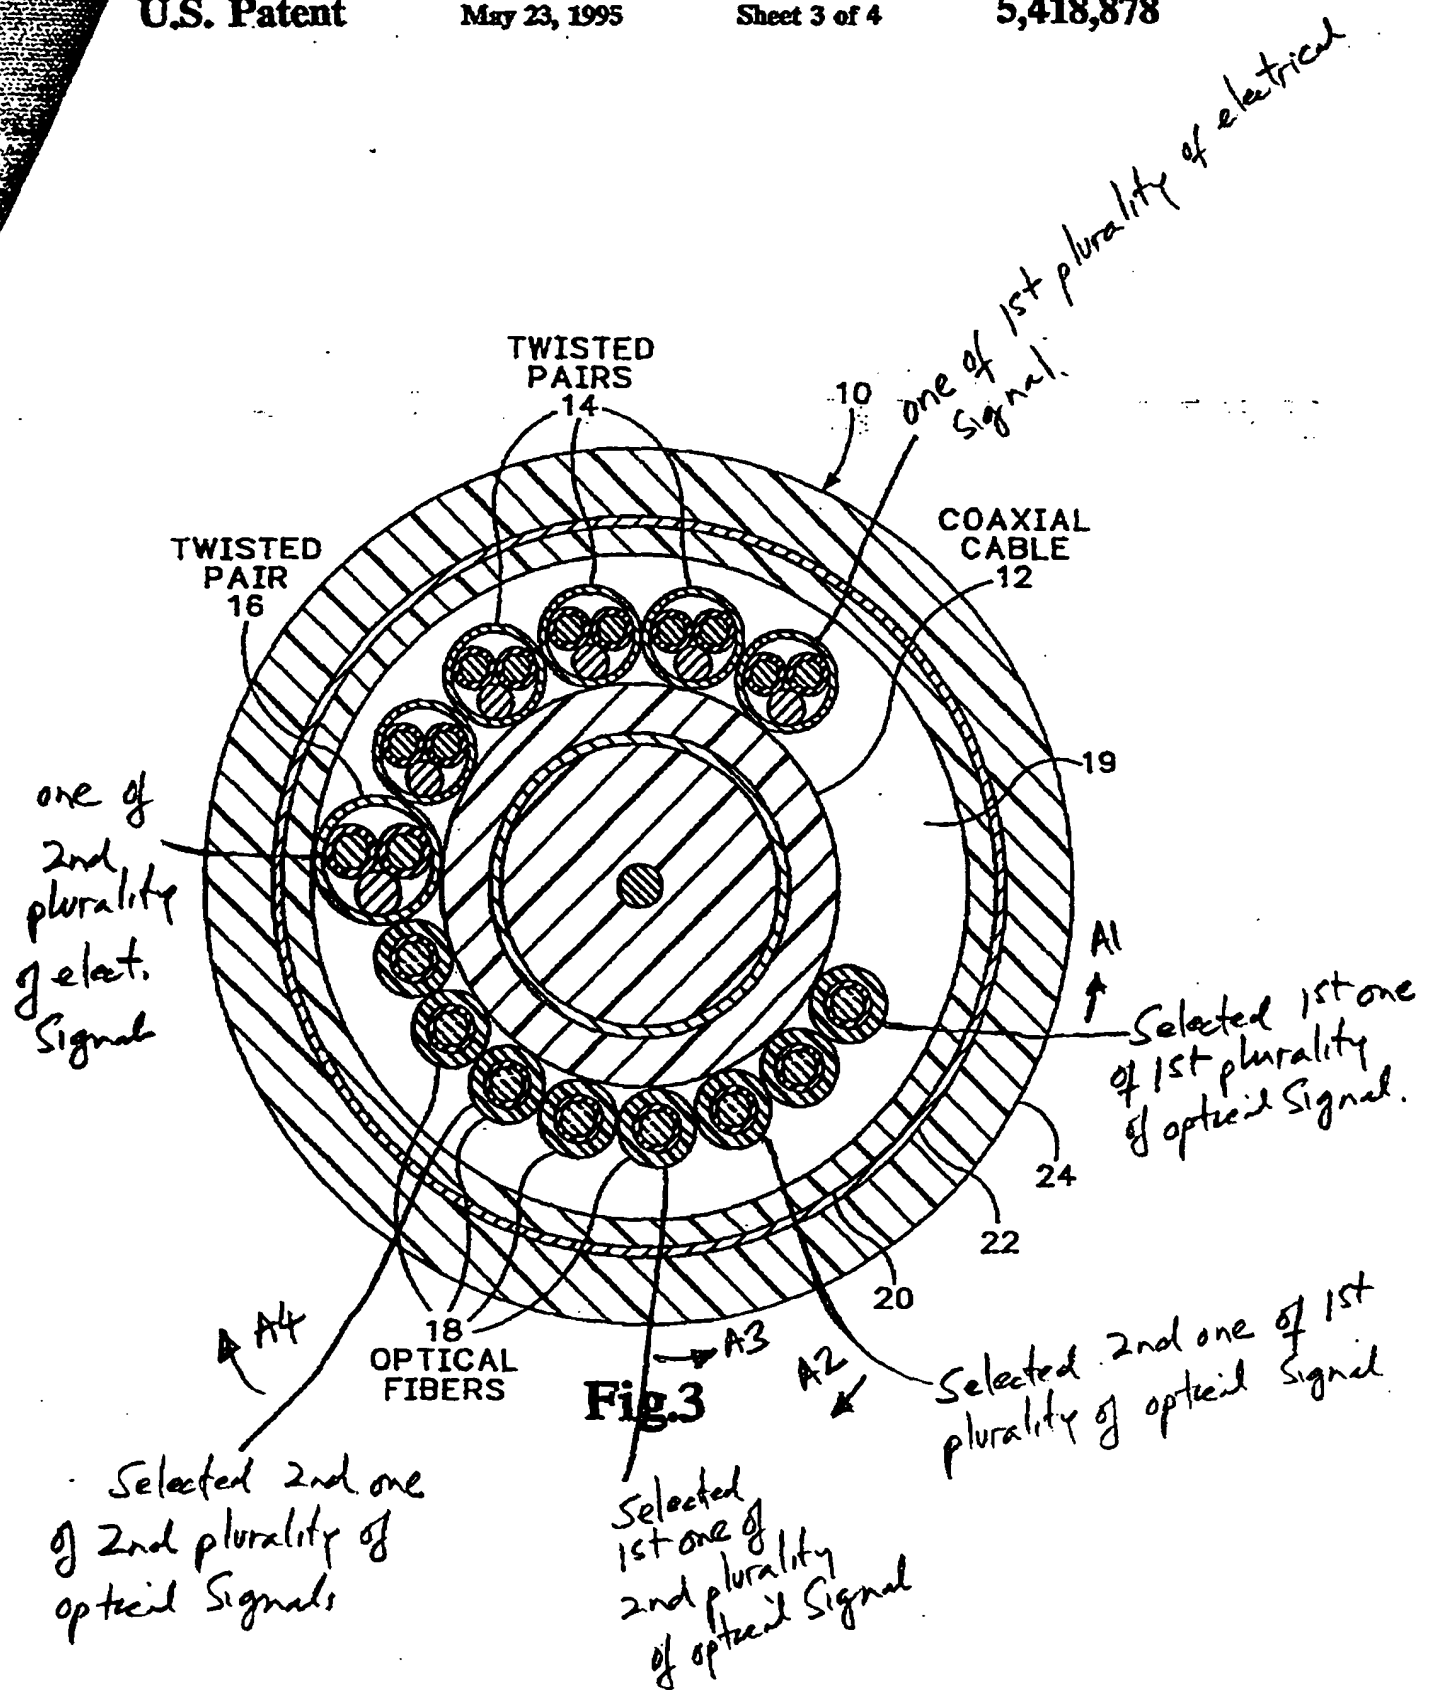 U.S. Patent May 23, 1995 Sheet 3 of 4 5,418,878
one of 1st plurality of electrical
signal.
TWISTED
PAIRS
14
10
COAXIAL
CABLE
12
TWISTED
PAIR
16
19
one of
2nd
plurality
of elect.
Signals
A1
Selected 1st one
of 1st plurality
of optical Signal.
24
22
20
18
OPTICAL
FIBERS
A4
A3
A2
Fig.3
Selected 2nd one of 1st
plurality of optical Signal
Selected 2nd one
of 2nd plurality of
optical Signals
Selected
1st one of
2nd plurality
of optical Signal